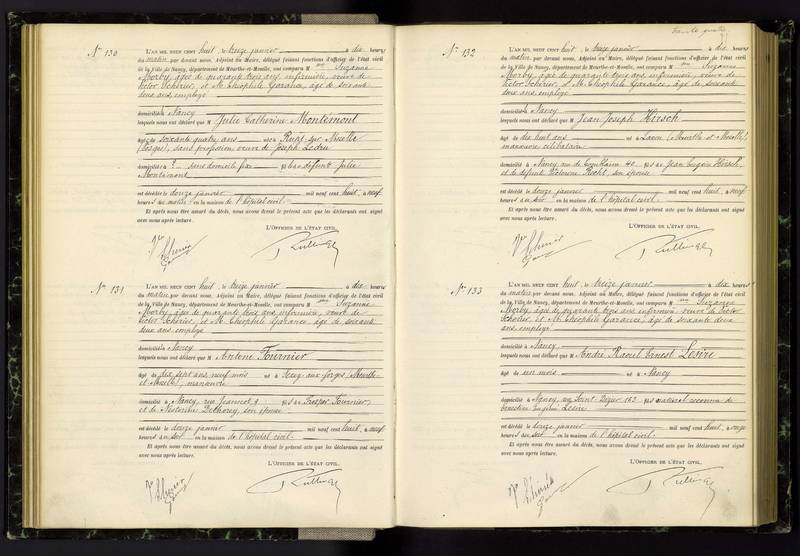 N° 130
L'AN MIL NEUF CENT huit, le treize janvier à dix heures
du matin, par devant nous, Adjoint au Maire, délégué faisant fonctions d'officier de l'état civil
de la Ville de Nancy, département de Meurthe-et-Moselle, ont comparu M me Suzanne
Morby, âgée de quarante trois ans, infirmière, veuve de
Victor Scherier, et M. Théophile Garance, âgé de soixante
deux ans, employé
domiciliés à Nancy
lesquels nous ont déclaré que Julie Catherine Montémont
âgée de soixante quatre ans née à Rupt-sur-Moselle
(Vosges), sans profession veuve de Joseph Ledru
domiciliée à ? sans domicile fixe fille de défunte Julie
Montémont
est décédée le douze janvier mil neuf cent huit, à neuf
heures du matin en la maison de l'hôpital civil.
Et après nous être assuré du décès, nous avons dressé le présent acte que les déclarants ont signé
avec nous après lecture.
L'OFFICIER DE L'ÉTAT CIVIL,
N° 131
L'AN MIL NEUF CENT huit, le treize janvier à dix heures
du matin, par devant nous, Adjoint au Maire, délégué faisant fonctions d'officier de l'état civil
de la Ville de Nancy, département de Meurthe-et-Moselle, ont comparu M me Suzanne
Morby, âgée de quarante trois ans, infirmière, veuve de
Victor Scherier, et M. Théophile Garance, âgé de soixante
deux ans, employé
domiciliés à Nancy
lesquels nous ont déclaré que M Antoine Fournier
âgé de dix sept ans, neuf mois né à Sexey aux forges (Meurthe
et Moselle), manœuvre
domicilié à Nancy, rue Jeannot 9 fils de Prosper Fournier,
et de son épouse
est décédé le douze janvier mil neuf cent huit, à neuf
heures du soir en la maison de l'hôpital civil.
Et après nous être assuré du décès, nous avons dressé le présent acte que les déclarants ont signé
avec nous après lecture.
L'OFFICIER DE L'ÉTAT CIVIL,
N° 132
L'AN MIL NEUF CENT huit, le treize janvier à dix heures
du matin, par devant nous, Adjoint au Maire, délégué faisant fonctions d'officier de l'état civil
de la Ville de Nancy, département de Meurthe-et-Moselle, ont comparu M me Suzanne
Morby, âgée de quarante trois ans, infirmière, veuve de
Victor Scherier, et M. Théophile Garance, âgé de soixante
deux ans, employé
domiciliés à Nancy
lesquels nous ont déclaré que M Jean Joseph Hirsch
âgé de dix huit ans né à Laxou (Meurthe et Moselle)
manœuvre célibataire
domicilié à Nancy rue de 40 fils de Jean Eugène Hirsch,
et de défunte son épouse
est décédé le douze janvier mil neuf cent huit, à neuf
heures du soir en la maison de l'hôpital civil.
Et après nous être assuré du décès, nous avons dressé le présent acte que les déclarants ont signé
avec nous après lecture.
L'OFFICIER DE L'ÉTAT CIVIL,
N° 133
L'AN MIL NEUF CENT huit, le treize janvier à dix heures
du matin, par devant nous, Adjoint au Maire, délégué faisant fonctions d'officier de l'état civil
de la Ville de Nancy, département de Meurthe-et-Moselle, ont comparu M me Suzanne
Morby, âgée de quarante trois ans, infirmière, veuve de Victor
Scherier, et M. Théophile Garance, âgé de soixante deux
ans, employé
domiciliés à Nancy
lesquels nous ont déclaré que M André Raoul Ernest Lesire
âgé de un mois né à Nancy
domicilié à Nancy, rue Saint Dizier 163 fils naturel reconnu de
Lesire
est décédé le douze janvier mil neuf cent huit, à onze
heures du soir en la maison de l'hôpital civil.
Et après nous être assuré du décès, nous avons dressé le présent acte que les déclarants ont signé
avec nous après lecture.
L'OFFICIER DE L'ÉTAT CIVIL,